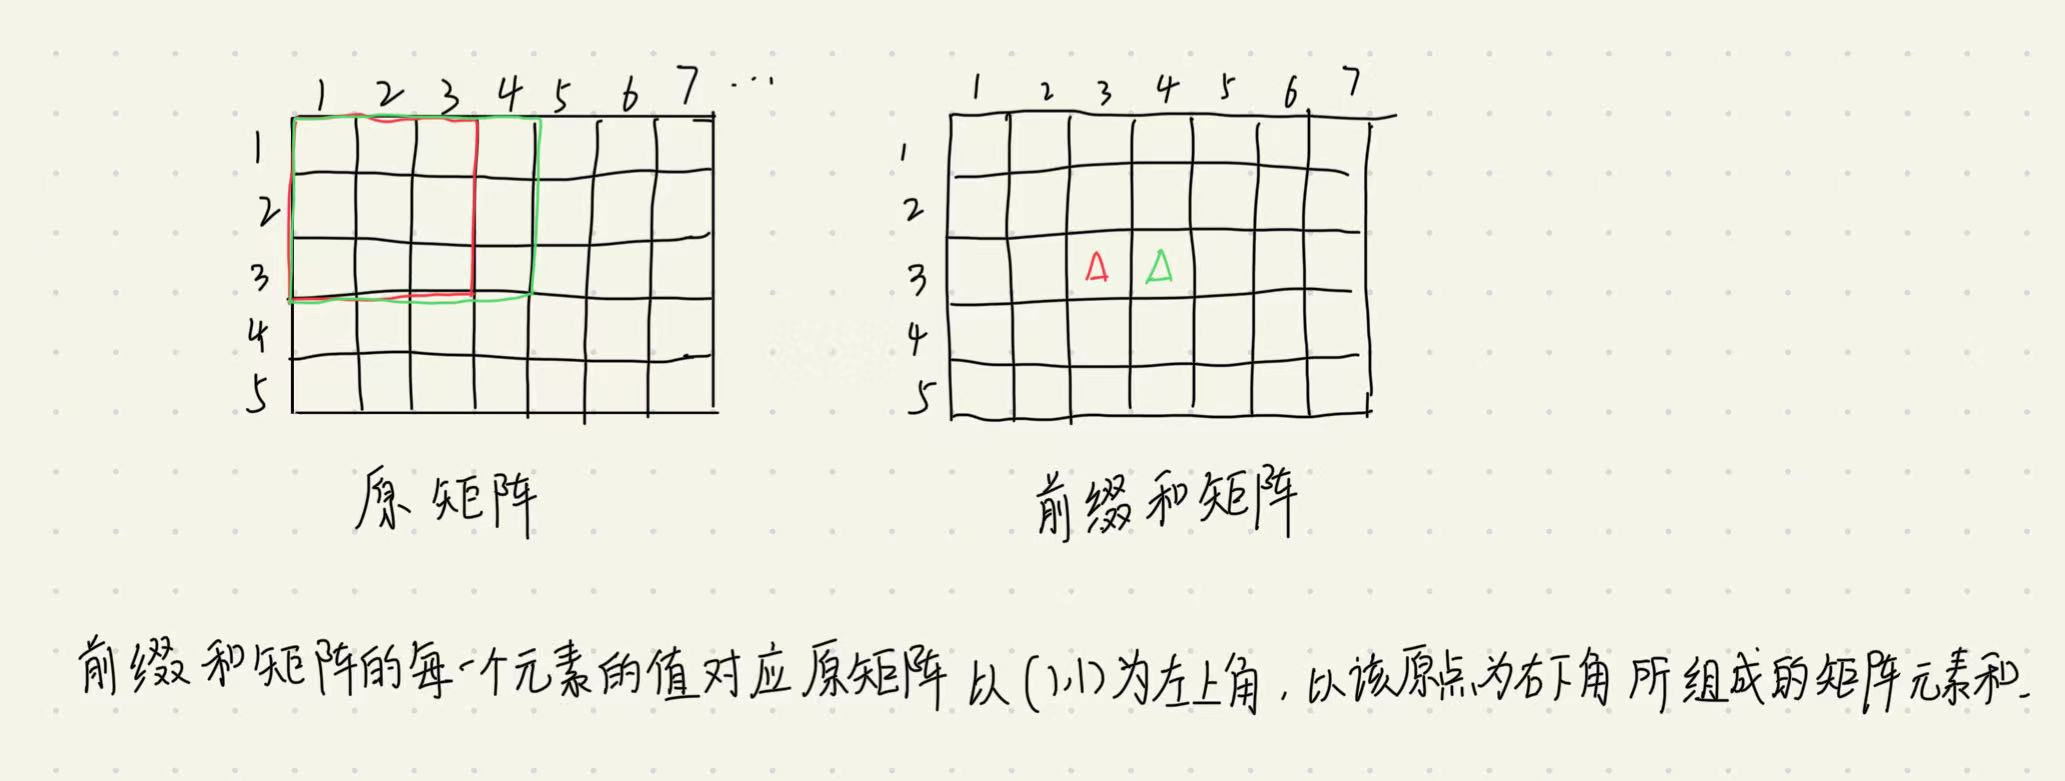 1 2 3 4 5 6 7 ...
1
2
3
4
5
原矩阵
1 2 3 4 5 6 7
1
2
3
4
5
前缀和矩阵
前缀和矩阵的每一个元素的值对应原矩阵以(1,1)为左上角,以该原点为右下角所组成的矩阵元素和.